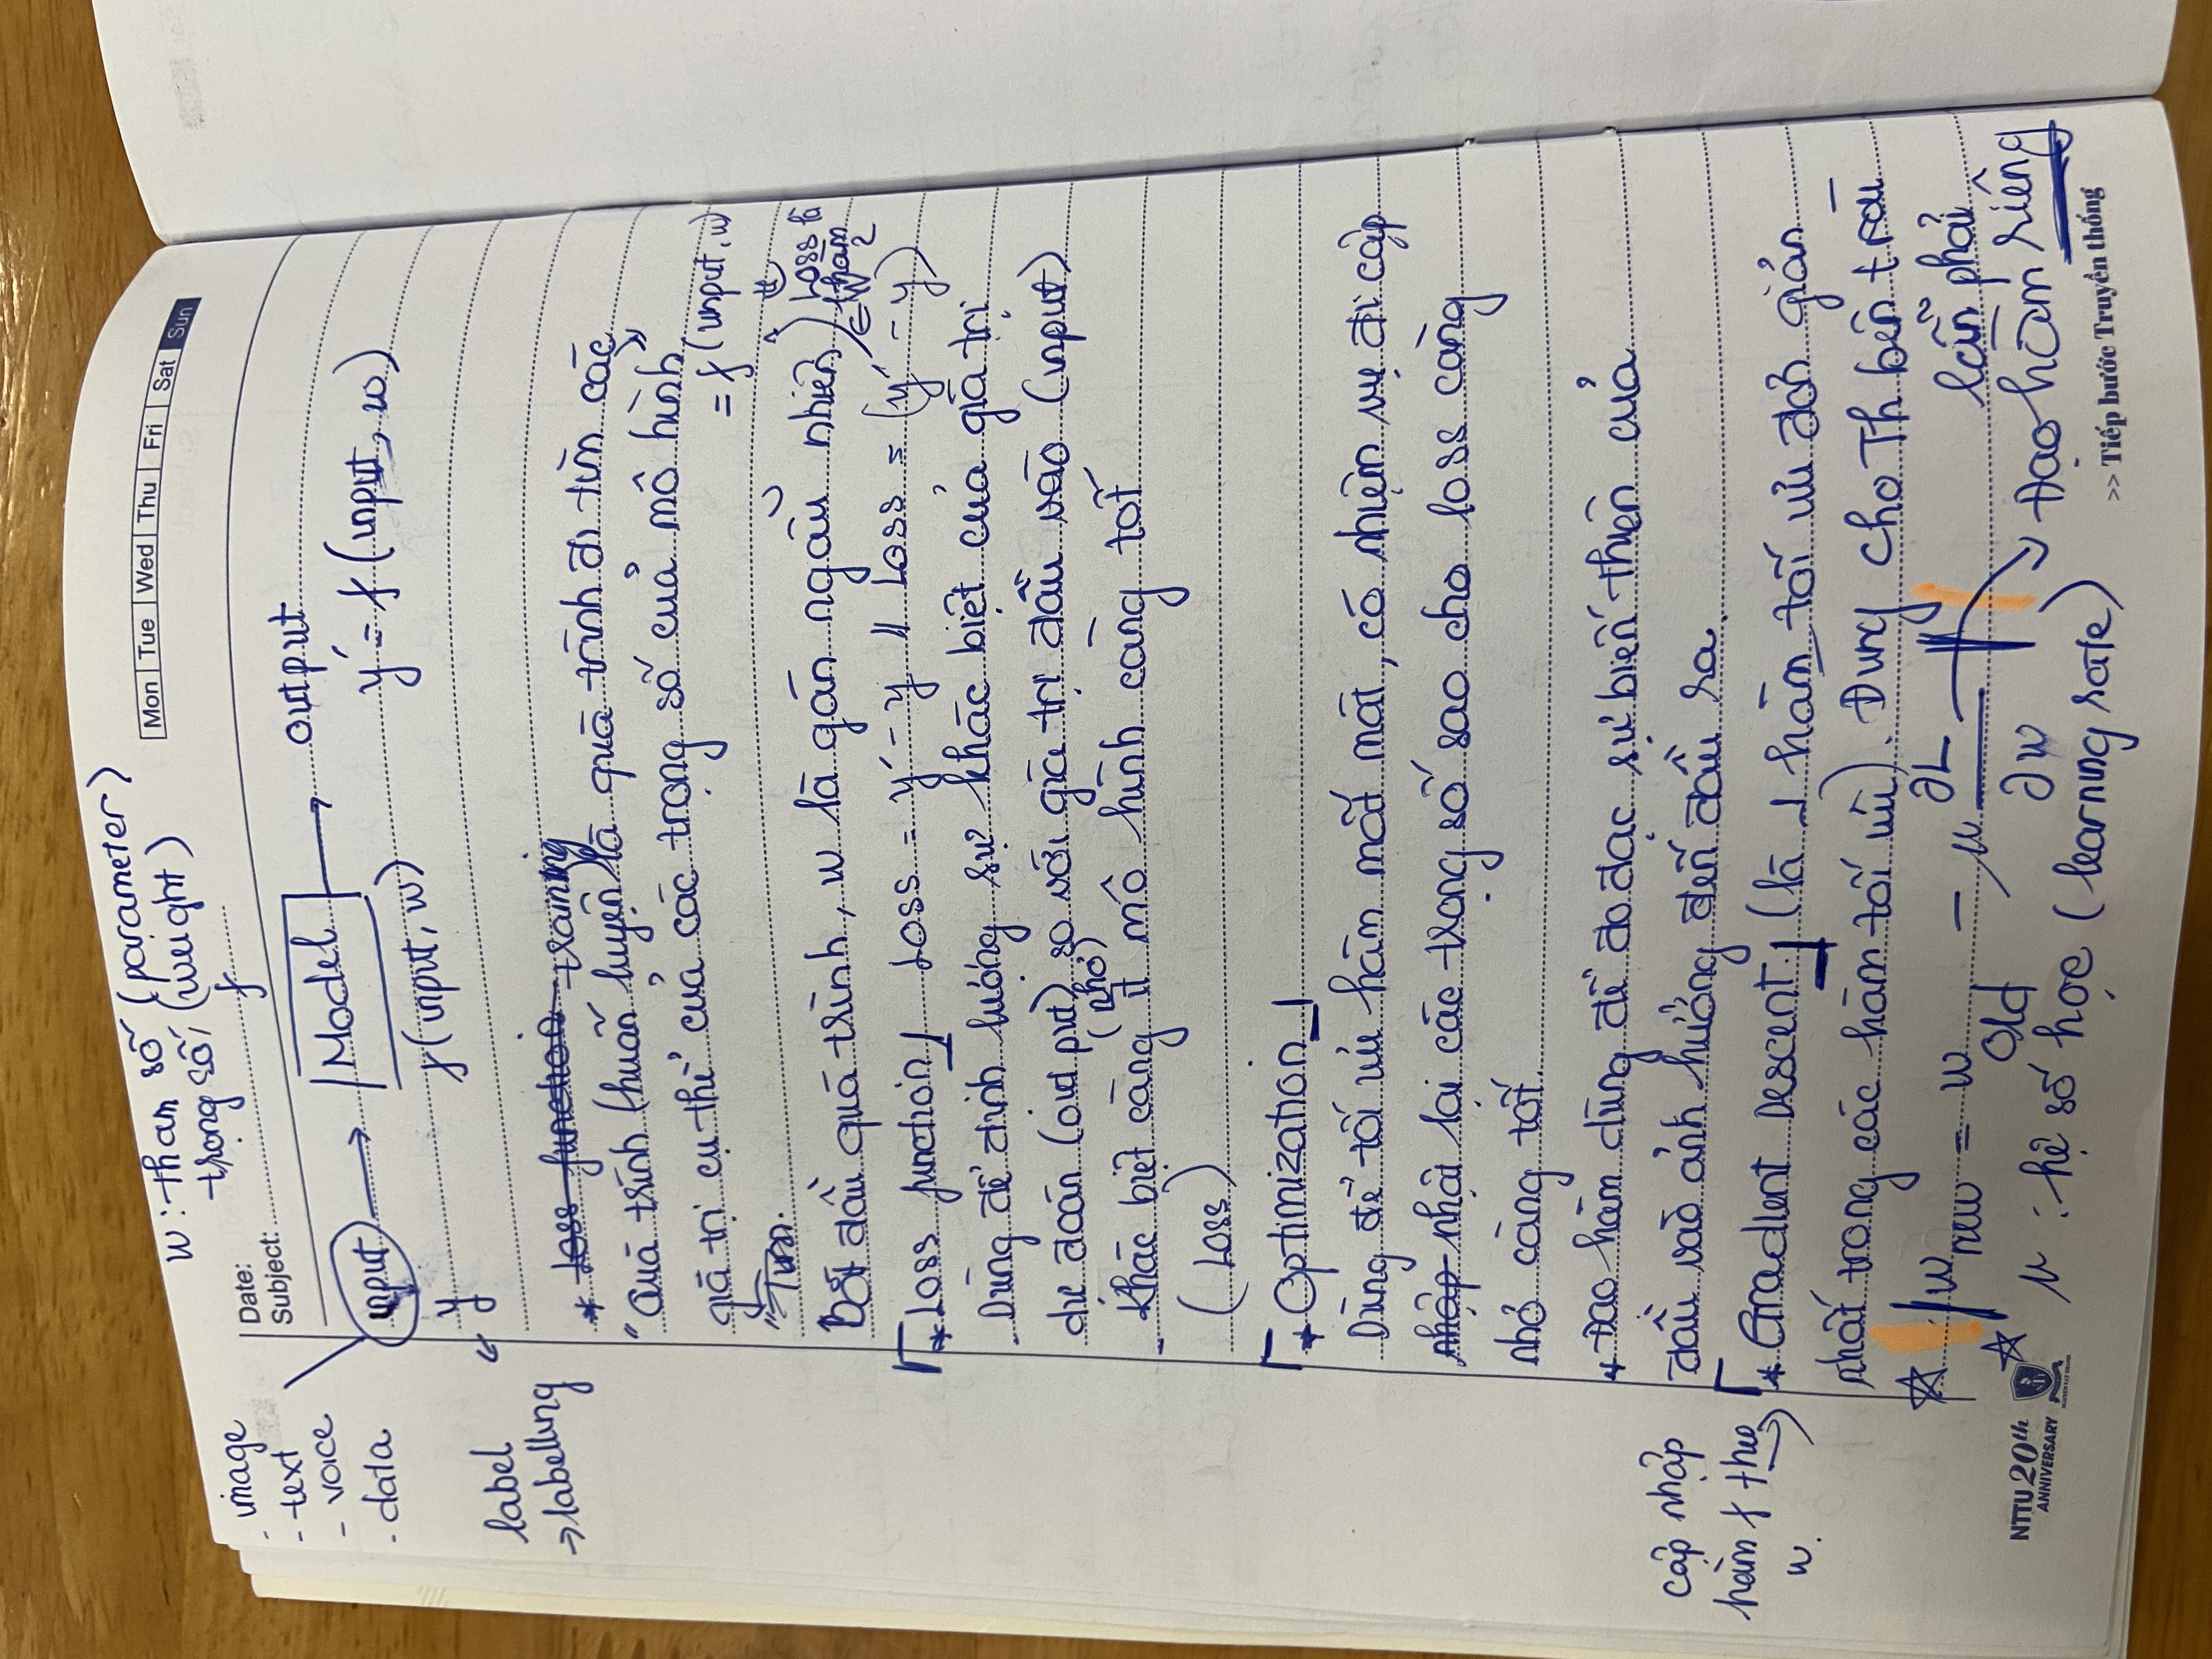 w : tham số (parameter)
trọng số (weight)
Mon Tue Wed Thu Fri Sat Sun
Date:
Subject:
- image
- text
- voice
- data
f
input → Model → output
y
f(input, w)
y' = f(input, w)
label
→ labelling
* Loss function training
"Quá trình (huấn luyện) là quá trình đi tìm các
giá trị cụ thể của các trọng số của mô hình"
= f(input, w)
Bắt đầu quá trình, w là gán ngẫu nhiên
Loss là
hàm
∈ W
* Loss function Loss = y' - y || Loss = (y' - y)²
- Dùng để định lượng sự khác biệt của giá trị
dự đoán (output) so với giá trị đầu vào (input)
(nhỏ)
- Khác biệt càng ít mô hình càng tốt
(Loss)
* Optimization
Dùng để tối ưu hàm mất mát, có nhiệm vụ đi cập
nhập nhật lại các trọng số sao cho loss càng
nhỏ càng tốt.
* Đạo hàm dùng để đo đạc sự biến thiên của
đầu vào ảnh hưởng đến đầu ra.
cập nhập
hàm f theo
w.
* Gradient Descent (là 1 hàm tối ưu đơn giản
nhất trong các hàm tối ưu). Dùng cho Th bên trái
lẫn phải
w new = w old - μ ∂L/∂w
Đạo hàm riêng
μ : hệ số học (learning rate)
NTTU 20th
ANNIVERSARY
>> Tiếp bước Truyền thống